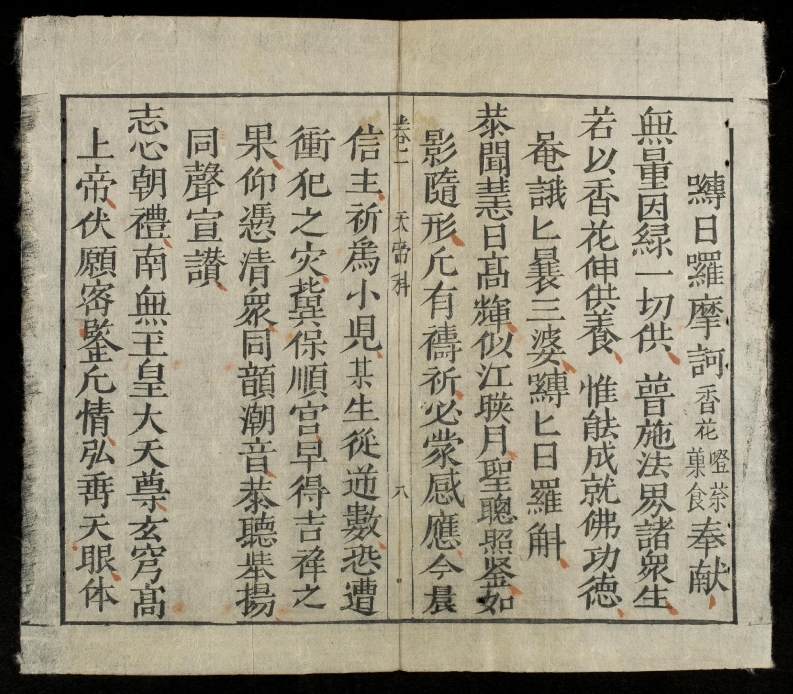 嚩日囉摩訶香花燈茶菓食奉献
無量因緣一切供普施法界諸衆生
若以香花伸供養惟能成就佛功德
菴誐匕曩三婆嚩匕日羅斛
恭聞慧日高輝似江暎月聖聰照鉴如
影隨形凡有禱祈必蒙感應今晨
卷二 天畨科 八
信主祈爲小児某生從逆數恐遭
衝犯之灾兾保順宫早得吉祥之
果仰憑清衆同韻潮音恭聽举揚
同聲宣讃
志心朝禮南無玉皇大天尊玄穹髙
上帝伏願宻鍳凡情弘垂天眼体